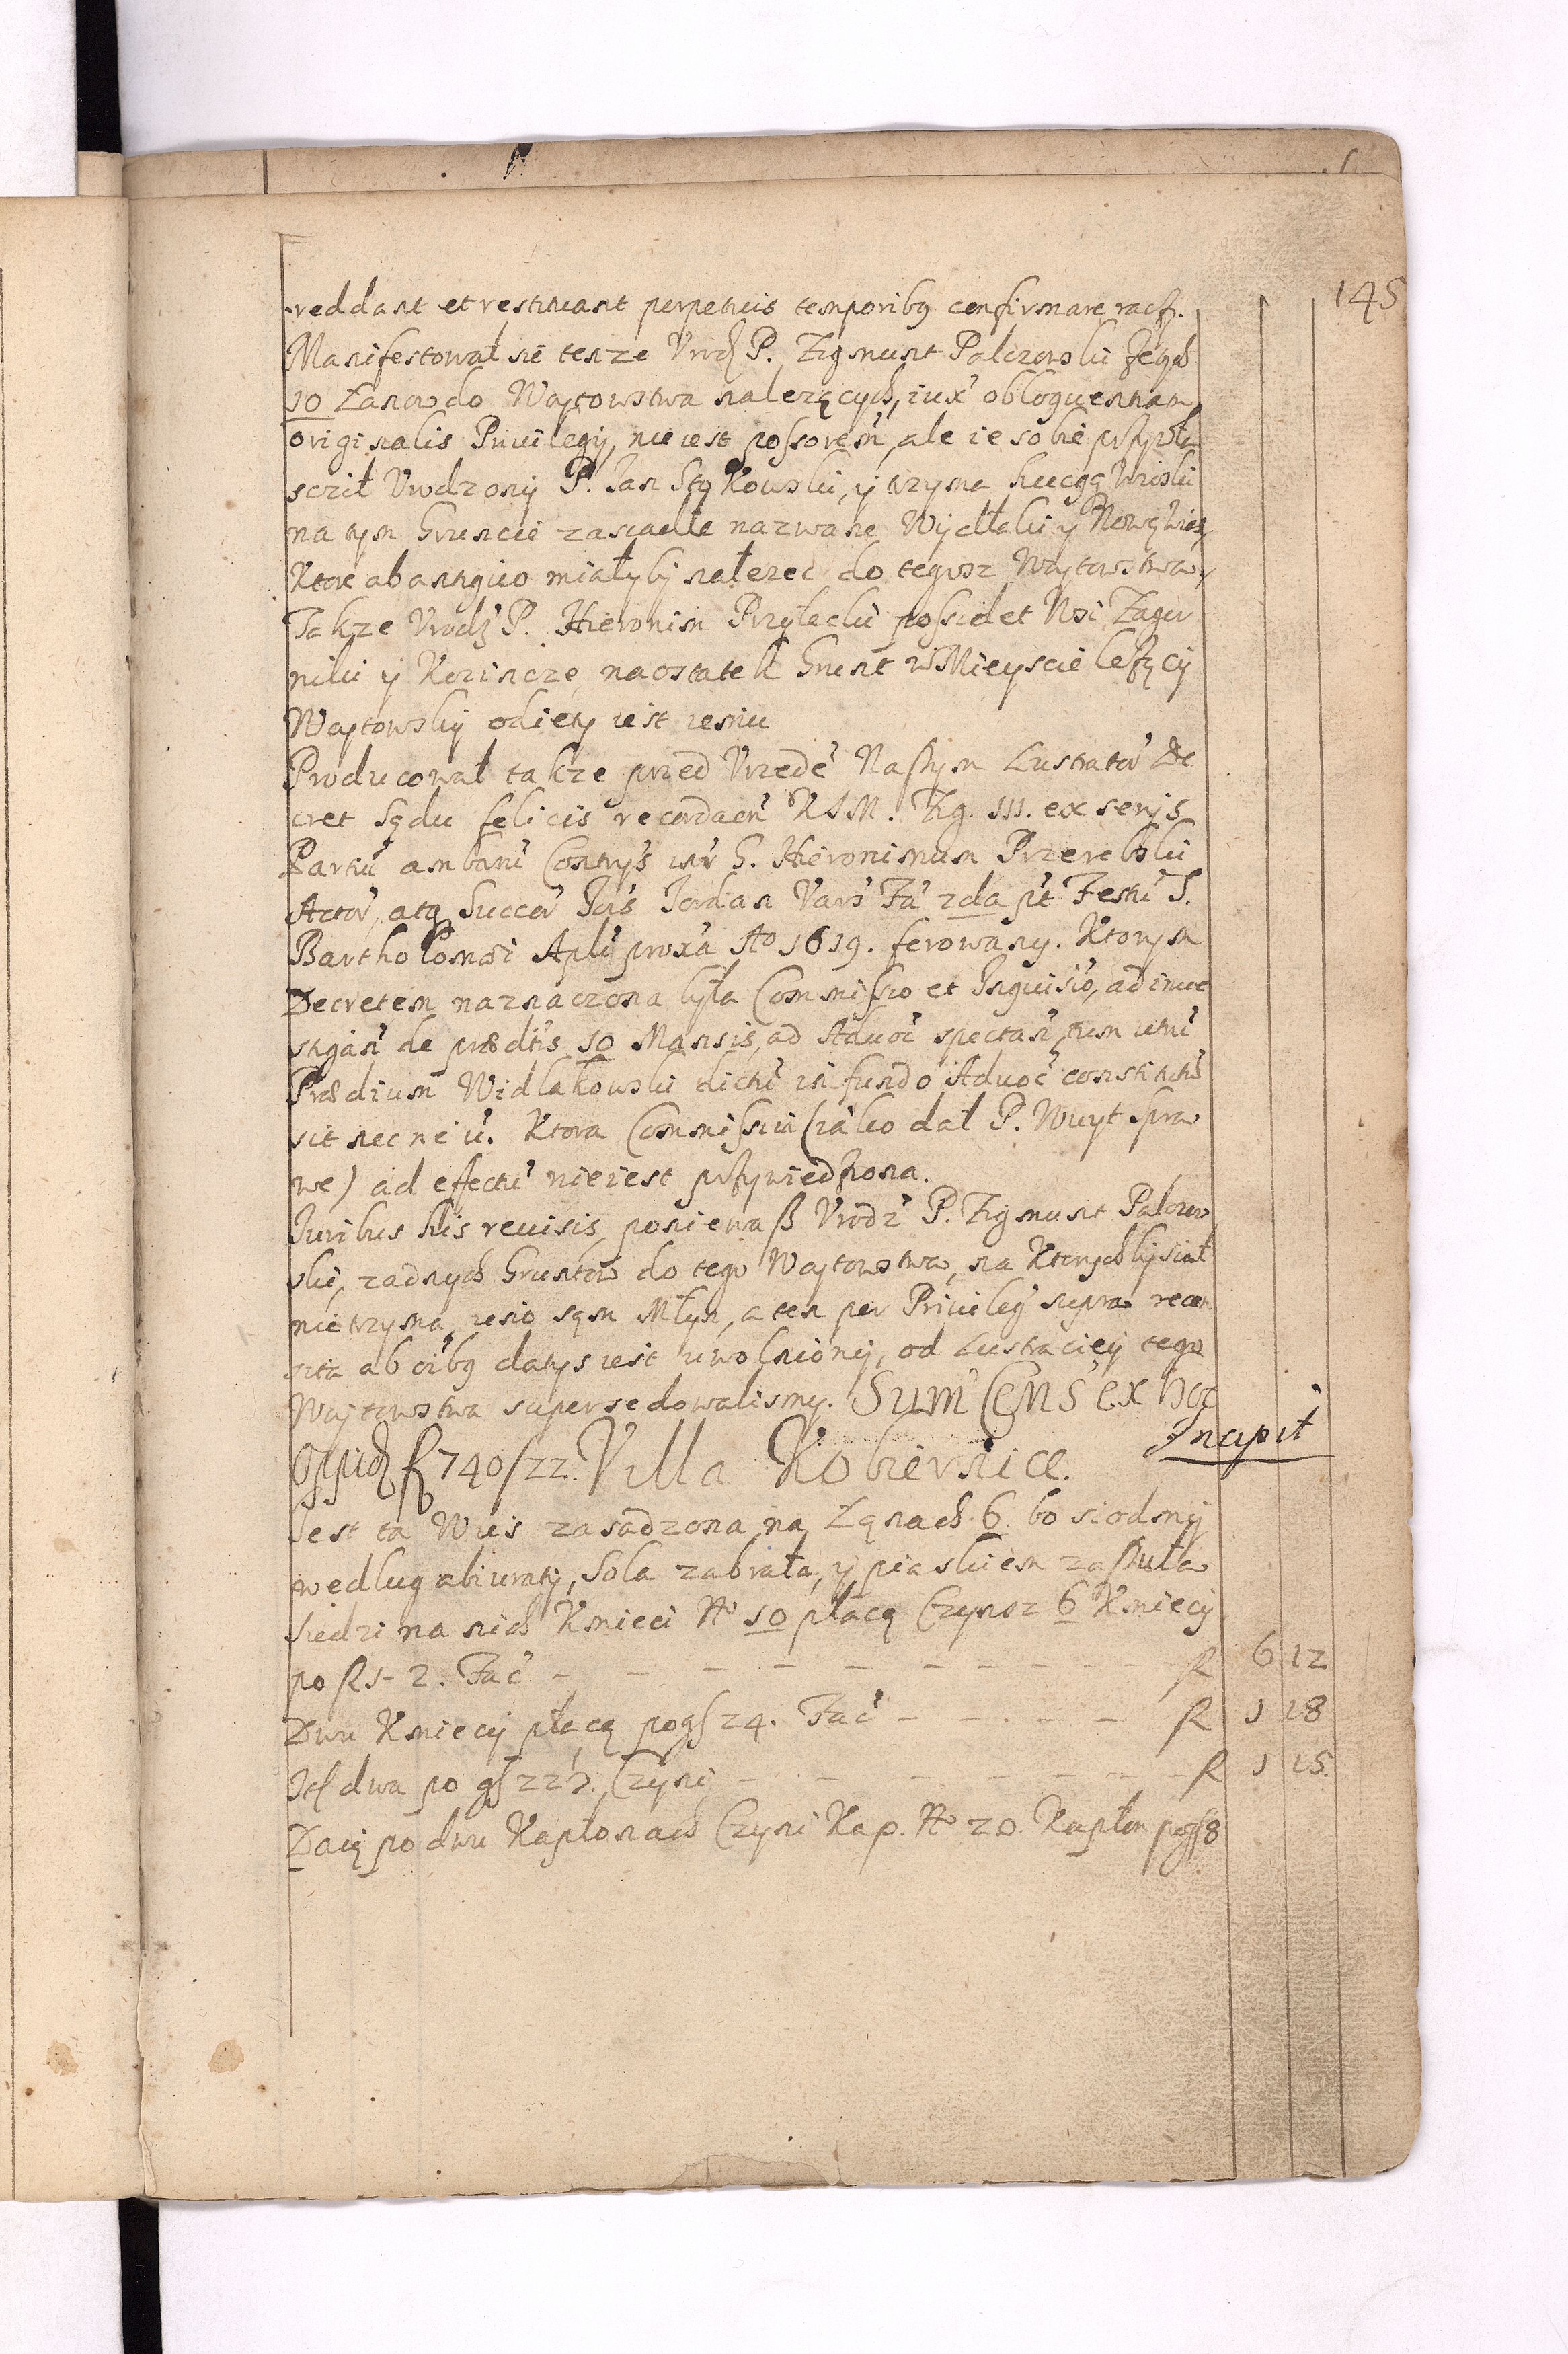 145
reddant et restituant perpetuis temporibq confirmare racz.
Manifestował sie tenze Vrodz P. Zigmunt Palczowski zegoz
10 Łanow do Waytowstwa nalezących, iux obloquentiam
originalis Priuilegij, nie iest possorem, ale ie sobie przywła
scził Vrodzony P. Jan Kowski, y trzyma
na tym Gruncie zasiadłe nazwane Wydłaki y Nową Wies,
Ktore ab antiquo miałyby nalezec do tegosz Waytowstwa,
Takze Vrodz P. Hieronim Przyłecki possidet Wsi Zagur
niki y Kozincze, naostatek Grunt w Mieyscie lezący
Waytowsky odiety iest iemu
Producował takze przed Vrzede Naszym Lustrator De
cret Sądu felicis recordacn K J M. Zyg. III. ex serijs
Partiu ambaru Contrys intr G. Hieronimum Przerebski
Actor, atq Succor Jordan Vars Fa 2da pt Festu S.
Bartholomæi Apli proxa Ao 1619. ferowany. Ktorym
Decretem naznaczona była Commissio et Inquisio, ad inue
stigan de prædtis 10 Mansis, ad Aduoc spectan, tum utru
Prædium Widlakowski dictu in fundo Aduoc constitutu
sit nec ne iu. Ktora Commissia (iako dał P. Wuyt spra
we) ad effectu nie iest przywiedziona.
Juribus his reuisis, poniewaß Vrodz P. Zigmunt Palczow
ski, zadnych Gruntow do tego Waytowstwa, na Ktorych by siał
nie trzyma, ieno sąm Młyn, a ten per Priuileg supra recen
sita ab oibq datys iest uwolniony, od Lustraciey tego
Waytowstwa supersedowalismy. Sum Cens ex hoc
Oppid f 740/22. Villa Kobiernice. Incipit
Jest ta Wies zasadzona na Łąnach 6. bo siodmy
według abiuraty, Sola zabrała, y piaskiem zasuła
Siedzi na nich Kmieci No 10 płacą Czynsz 6 Kmiecy
po f 1 - 2. Fac - - - - - - - - f 6 12
Dwu Kmiecy płacą po gs 24. Fac - - - - f 1 18
It dwa po gs 22½. Czyni - - - - - - f 1 15.
Daią po dwu Kapłonach Czyni Kap. No 20. Kapłon po gs 8